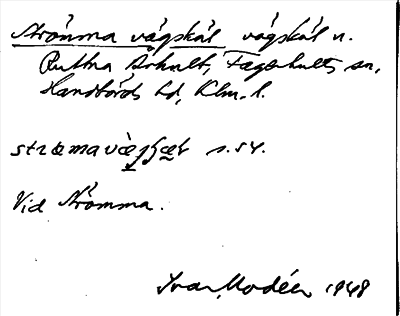 Strömma vägskäl vägskäl n.
Ruttna Arhult, Fagerhults sn,
Handbörds hd, Klm. l.
s. 54.
Vid Strömma.
Ivar Modéer 1948